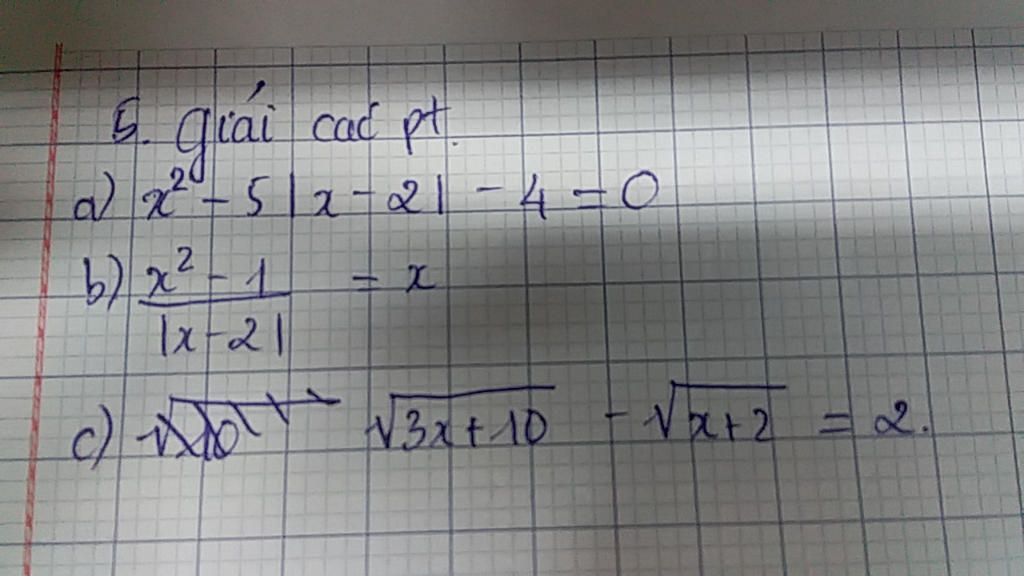 5. Giải các pt.
a) x² - 5|x - 2| - 4 = 0
b) \frac{x² - 1}{|x - 2|} = x
c) √(3x+10) - √(x+2) = 2.